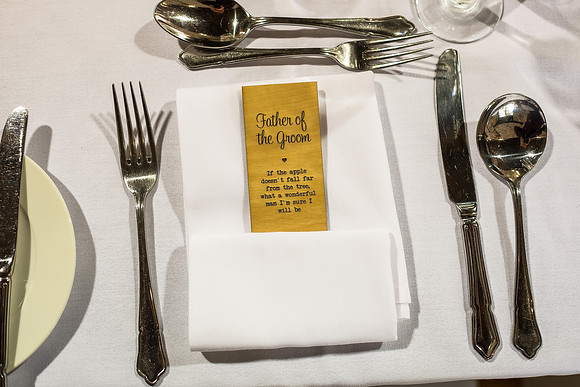 Father of
the Groom
If the apple
doesn't fall far
from the tree,
what a wonderful
man I'm sure I
will be